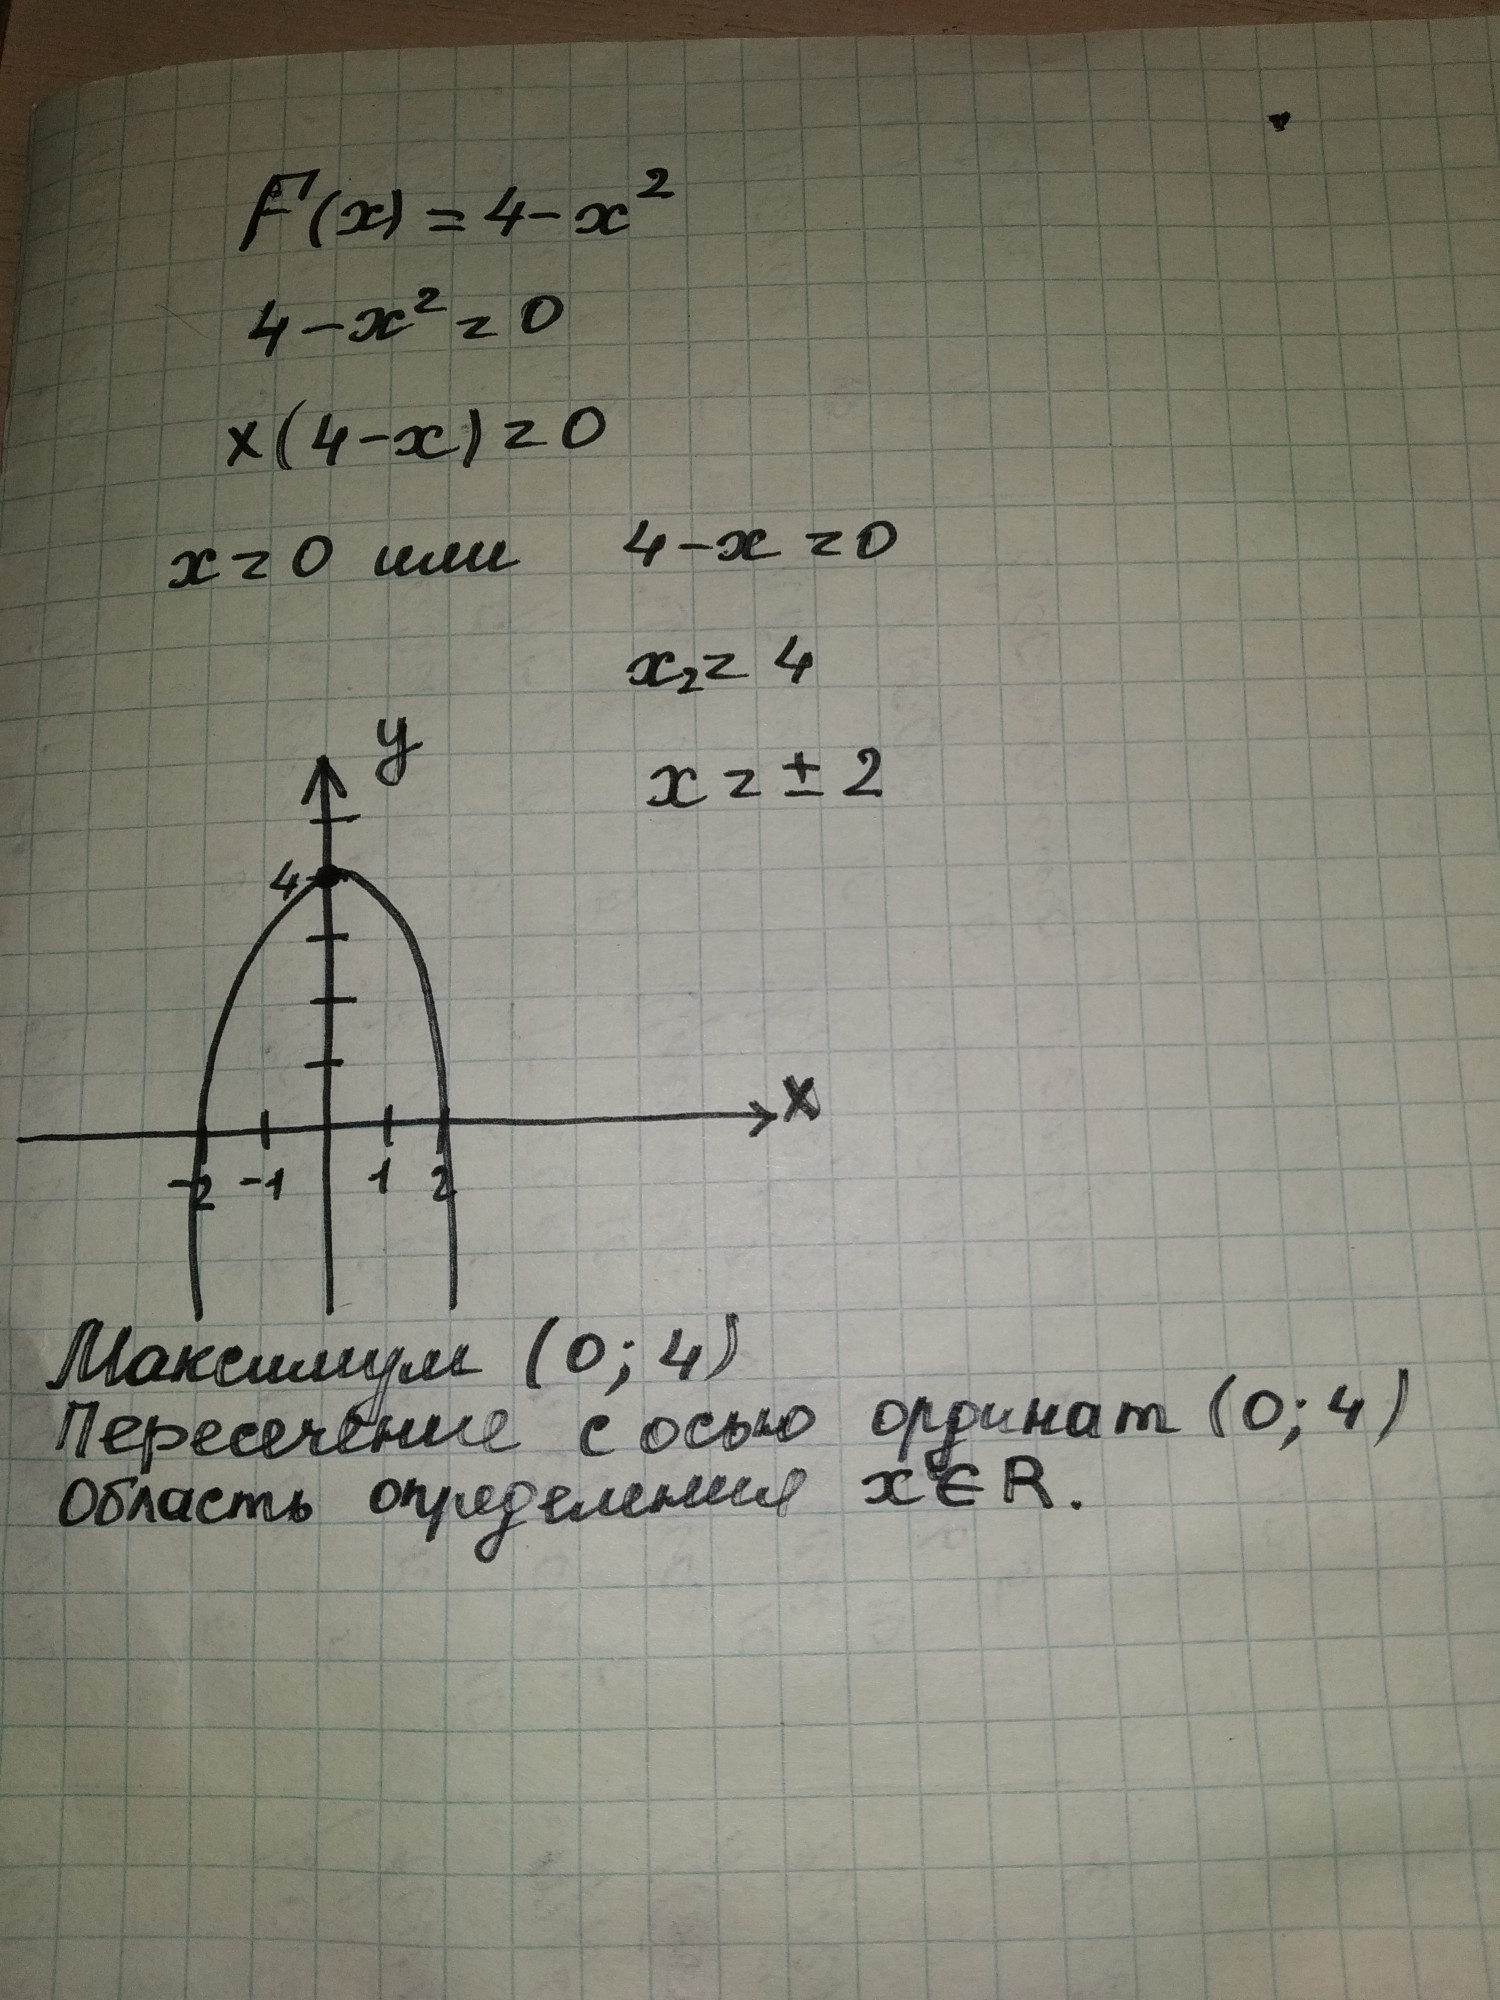 F(x) = 4 - x²
4 - x² = 0
x(4 - x) = 0
x = 0 или 4 - x = 0
x₂ = 4
x = ± 2
y
4
x
-2 -1 1 2
Максимум (0; 4)
Пересечение с осью ординат (0; 4)
Область определения x ∈ R.